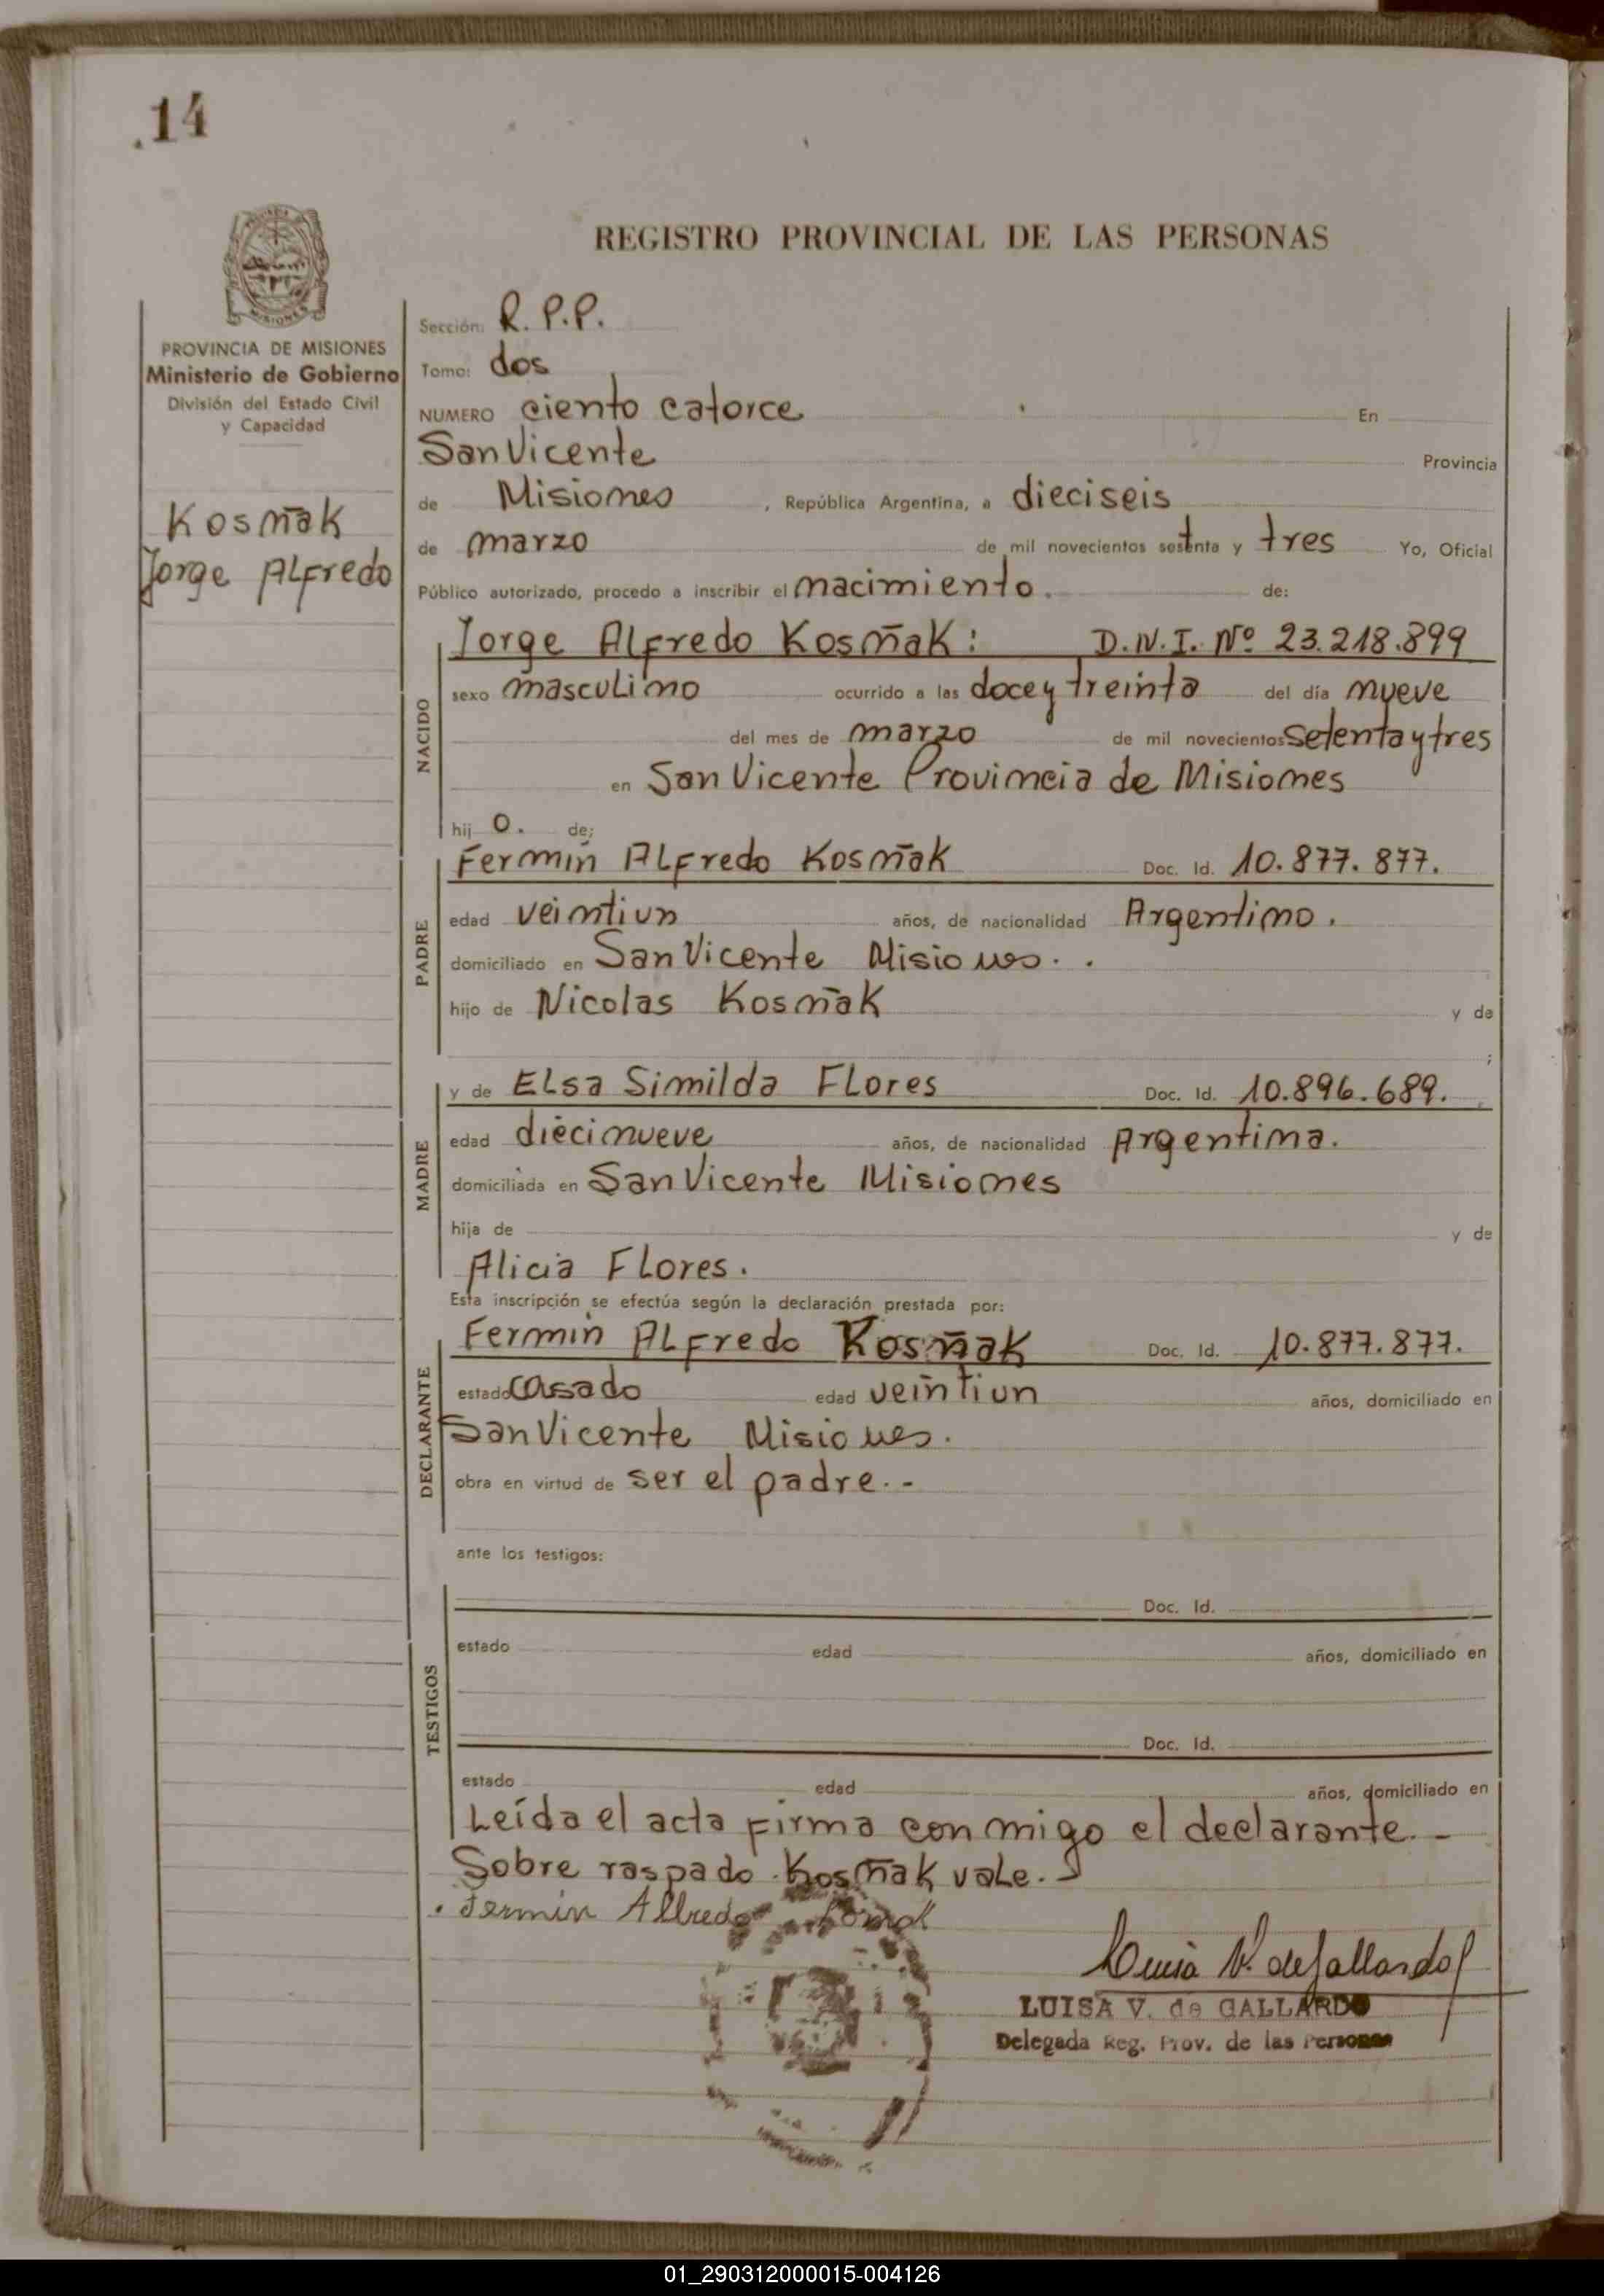 .14
REGISTRO PROVINCIAL DE LAS PERSONAS
PROVINCIA DE MISIONES
Ministerio de Gobierno
División del Estado Civil
y Capacidad
Kosmak
Jorge Alfredo
Sección: R. P. P.
Tomo: dos
NUMERO ciento catorce En
San Vicente Provincia
de Misiones, República Argentina, a dieciseis
de marzo de mil novecientos setenta y tres Yo, Oficial
Público autorizado, procedo a inscribir el nacimiento. de:
NACIDO
Jorge Alfredo Kosmak: D.N.I. Nº 23.218.899
sexo masculino ocurrido a las doce y treinta del día nueve
del mes de marzo de mil novecientos setenta y tres
en San Vicente Provincia de Misiones
hij o. de;
PADRE
Fermin Alfredo Kosmak Doc. Id. 10.877.877.
edad veintiun años, de nacionalidad Argentino.
domiciliado en San Vicente Misiones..
hijo de Nicolas Kosmak y de
;
MADRE
y de Elsa Similda Flores Doc. Id. 10.896.689.
edad diecinueve años, de nacionalidad Argentina.
domiciliada en San Vicente Misiones
hija de y de
Alicia Flores.
Esta inscripción se efectúa según la declaración prestada por:
DECLARANTE
Fermin Alfredo Kosmak Doc. Id. 10.877.877.
estado casado edad veintiun años, domiciliado en
San Vicente Misiones.
obra en virtud de ser el padre.-
ante los testigos:
TESTIGOS
Doc. Id.
estado edad años, domiciliado en
Doc. Id.
estado edad años, domiciliado en
Leída el acta firma conmigo el declarante.-
Sobre raspado Kosmak vale.-
Fermin Alfredo
Luisa V. de Gallardo
LUISA V. de GALLARDO
Delegada Reg. Prov. de las Personas
01_290312000015-004126